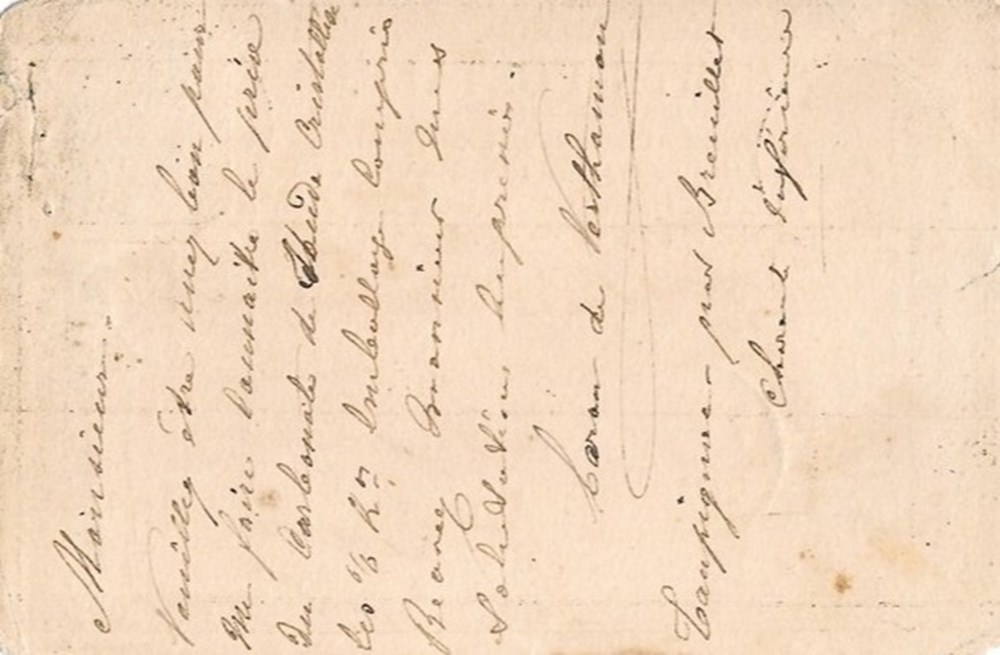 Monsieur
Veuillez être assez bon pour
me faire connaitre le prix
du Carbonate de Soude Cristallisé
les % K°s Emballage Compris
Recevez Monsieur mes
Salutations empressées.
Baron de Verthamon
par Breuillet
Charente Inférieure